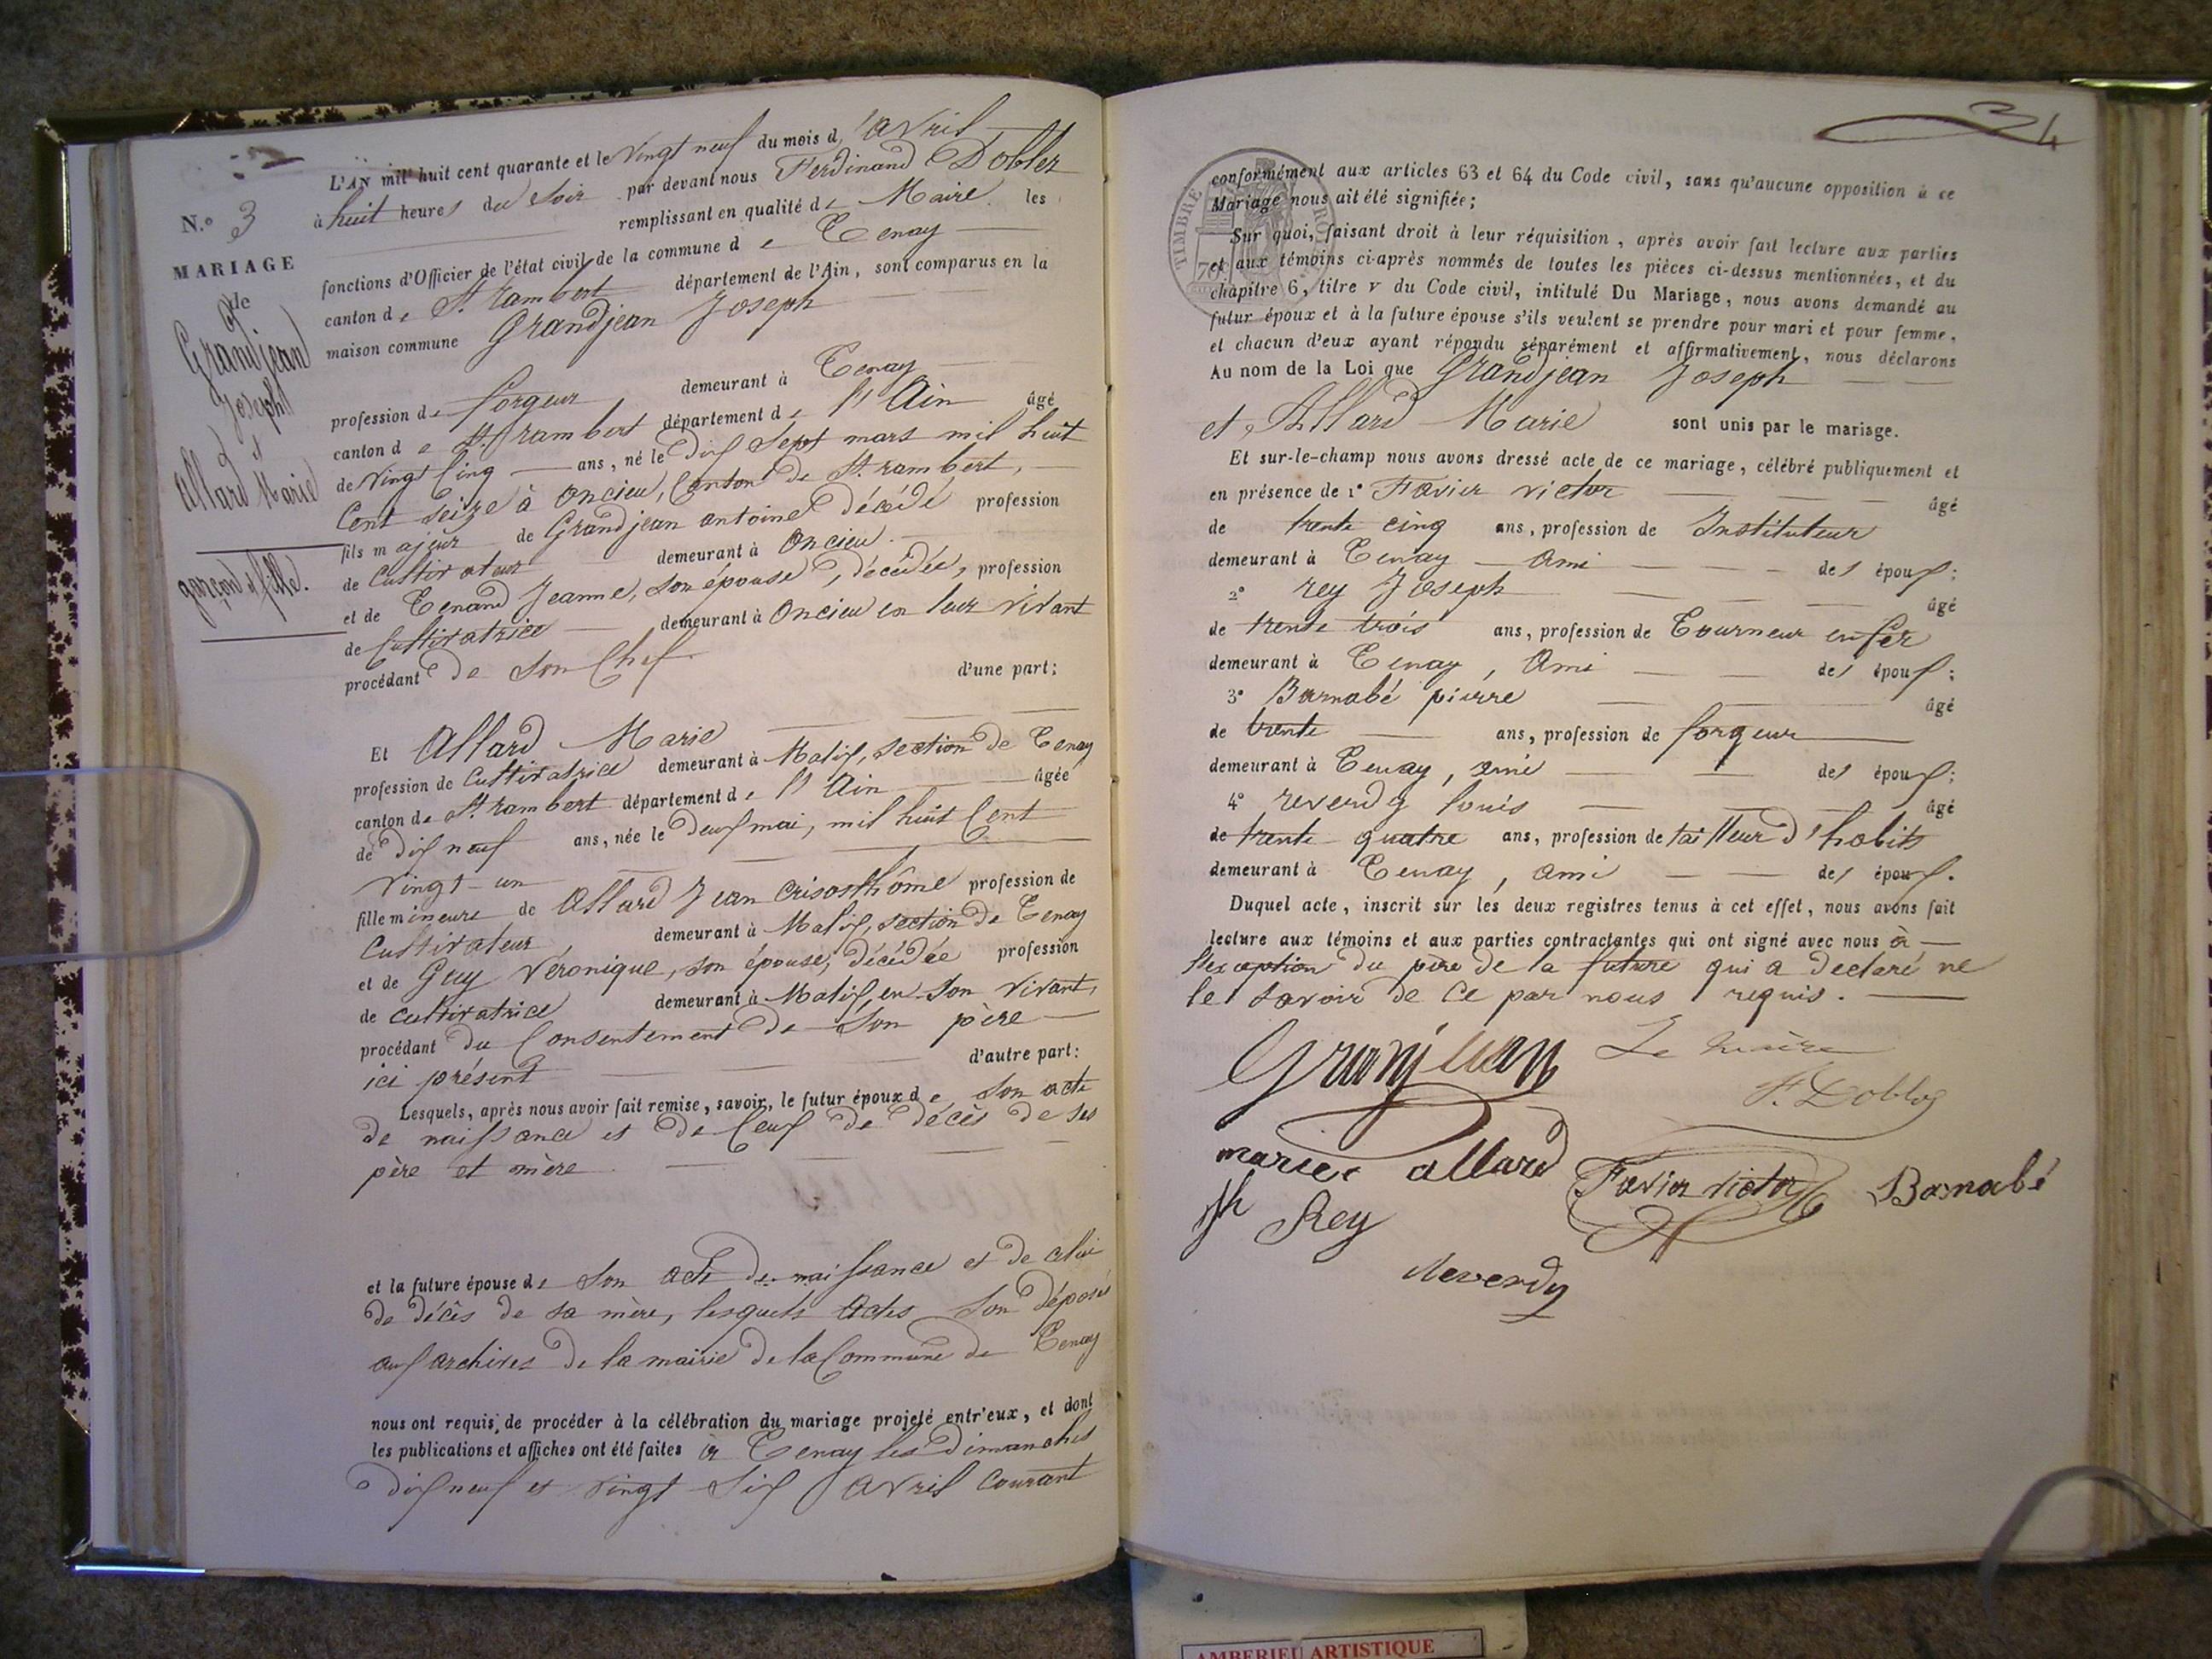 N.o 3
MARIAGE
de
Grandjean
Joseph
et
Allard Marie
garçon et fille.
L'AN mil huit cent quarante et le vingt neuf du mois d'avril
à huit heures du soir par devant nous Ferdinand Dobler
remplissant en qualité de Maire les
fonctions d'Officier de l'état civil de la commune de Tenay
canton de St. rambert département de l'Ain, sont comparus en la
maison commune Grandjean Joseph
profession de forgeur demeurant à Tenay
canton de St. rambert département de l'Ain âgé
de vingt cinq ans, né le dix sept mars mil huit
cent seize à oncieu, canton de St. rambert,
fils majeur de Grandjean antoine décédé profession
de cultivateur demeurant à oncieu
et de Tenand Jeanne, son épouse, décédée, profession
de cultivatrice demeurant à oncieu en leur vivant
procédant de son chef d'une part;
Et Allard Marie
profession de cultivatrice demeurant à Malix, section de Tenay
canton de St. rambert département de l'Ain âgée
de dix neuf ans, née le deux mai, mil huit cent
vingt-un
fille mineure de Allard Jean crisosthôme profession de
cultivateur demeurant à Malix, section de Tenay
et de Guy Véronique, son épouse, décédée profession
de cultivatrice demeurant à Malix, en son vivant,
procédant du consentement de son père
ici présent d'autre part:
Lesquels, après nous avoir fait remise, savoir, le futur époux de son acte
de naissance et de ceux de décès de ses
père et mère
et la future épouse de son acte de naissance et de celui
de décès de sa mère, lesquels actes son déposés
aux archives de la mairie de la commune de Tenay
nous ont requis de procéder à la célébration du mariage projeté entr'eux, et dont
les publications et affiches ont été faites à Tenay les dimanches
dix neuf et vingt six avril courant
34
TIMBRE RO
70c
conformément aux articles 63 et 64 du Code civil, sans qu'aucune opposition à ce
Mariage nous ait été signifiée;
Sur quoi, faisant droit à leur réquisition, après avoir fait lecture aux parties
et aux témoins ci-après nommés de toutes les pièces ci-dessus mentionnées, et du
chapitre 6, titre v du Code civil, intitulé Du Mariage, nous avons demandé au
futur époux et à la future épouse s'ils veulent se prendre pour mari et pour femme,
et chacun d'eux ayant répondu séparément et affirmativement, nous déclarons
Au nom de la Loi que Grandjean Joseph
et Allard Marie sont unis par le mariage.
Et sur-le-champ nous avons dressé acte de ce mariage, célébré publiquement et
en présence de 1° Favier victor âgé
de trente cinq ans, profession de Instituteur
demeurant à Tenay ami des époux;
2° rey Joseph âgé
de trente trois ans, profession de Tourneur en fer
demeurant à Tenay, ami des époux;
3° Barnabé pierre âgé
de trente ans, profession de forgeur
demeurant à Tenay, ami des époux;
4° reverdy louis âgé
de trente quatre ans, profession de tailleur d'habits
demeurant à Tenay, ami des époux.
Duquel acte, inscrit sur les deux registres tenus à cet effet, nous avons fait
lecture aux témoins et aux parties contractantes qui ont signé avec nous à
l'exception du père de la future qui a declaré ne
le savoir de ce par nous requis.
Granjean Le maire
F. Dobler
marie allard Favier victor Barnabé
Jh Rey
Reverdy
AMBERIEU ARTISTIQUE